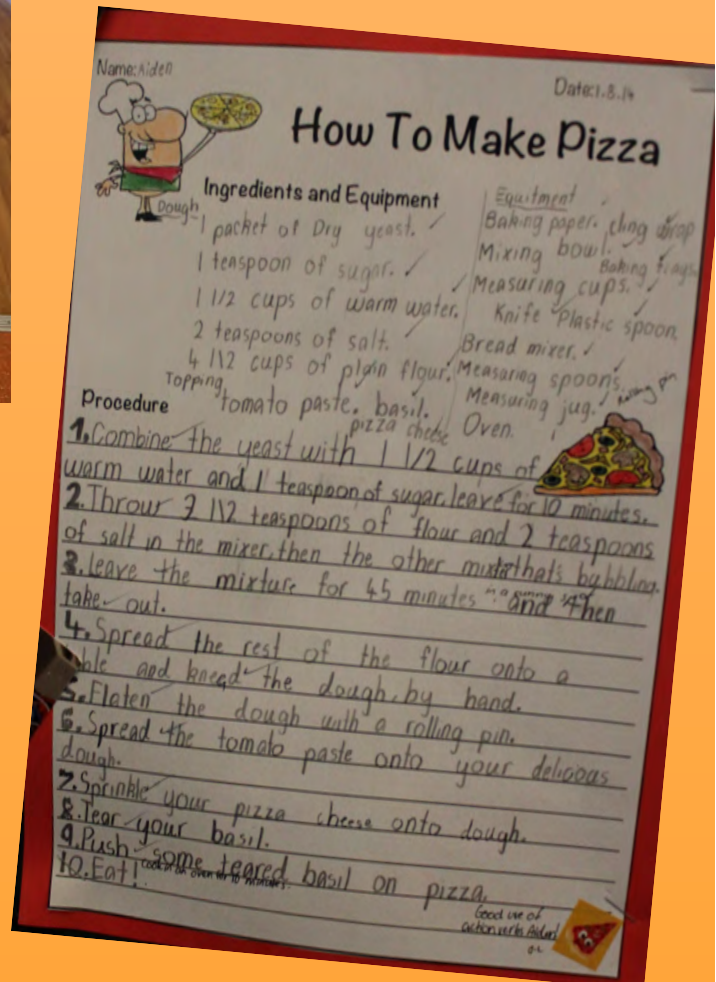 Name: Aiden
Date: 1.8.14
How To Make Pizza
Ingredients and Equipment
Dough
1 packet of Dry yeast.
1 teaspoon of sugar.
1 1/2 cups of warm water.
2 teaspoons of salt.
4 1\2 cups of plain flour.
Topping
tomato paste. basil.
pizza cheese
Equitment
Baking paper. cling wrap
Mixing bowl.
Baking trays.
Measuring cups.
Knife Plastic spoon.
Bread mixer.
Measaring spoons.
Measuring jug. Rolling pin
Oven.
Procedure
1. Combine the yeast with 1 1/2 cups of
warm water and 1 teaspoon of sugar. leave for 10 minutes.
2. Throw 3 1\2 teaspoons of flour and 2 teaspoons
of salt in the mixer. then the other that's bubbling.
3. leave the mixture for 45 minutes and then
take out.
4. Spread the rest of the flour onto a
ble and knead the dough. by hand.
5. Flaten the dough with a rolling pin.
6. Spread the tomato paste onto your delicous
dough.
7. Sprinkle your pizza cheese onto dough.
8. Tear your basil.
9. Push some teared basil on pizza.
10. Eat! Cook in an oven for 10 minutes.
Good use of
action verbs Aiden!